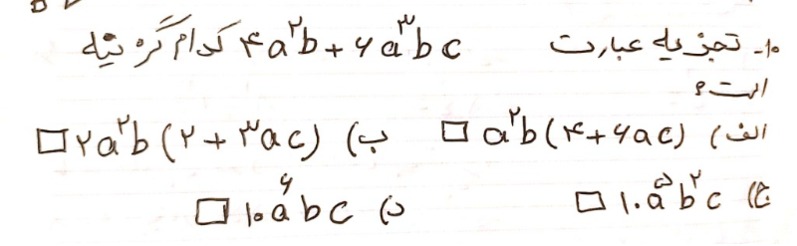 ۱۰- تجزیه عبارت ۴a²b + ۶a³bc کدام گزینه
است؟
الف) a²b(۴+۶ac) □ ب) ۲a²b(۲+۳ac) □
ج) ۱۰a⁵b²c □ د) ۱۰a⁶bc □